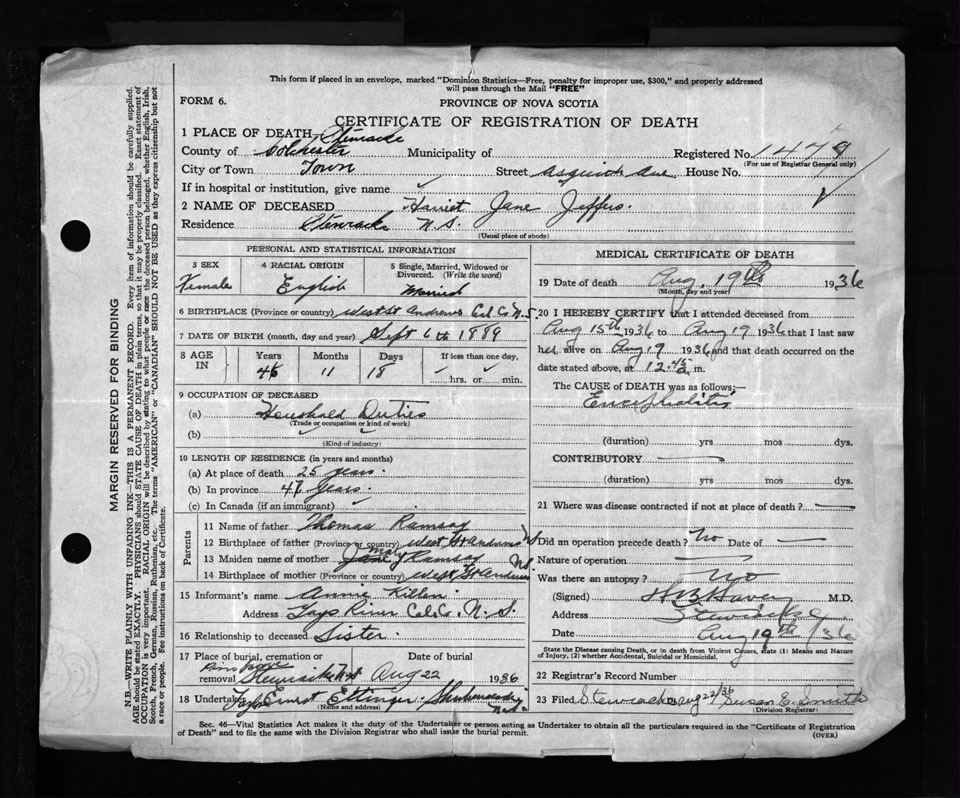 This form if placed in an envelope, marked "Dominion Statistics—Free, penalty for improper use, $300," and properly addressed
will pass through the Mail "FREE"
FORM 6.
PROVINCE OF NOVA SCOTIA
CERTIFICATE OF REGISTRATION OF DEATH
1 PLACE OF DEATH
County of Colchester Municipality of Registered No. 1479
(For use of Registrar General only)
City or Town Town Street Asquith Ave. House No.
If in hospital or institution, give name
2 NAME OF DECEASED Harriet Jane Jeffers.
Residence N.S.
(Usual place of abode)
PERSONAL AND STATISTICAL INFORMATION
3 SEX
Female
4 RACIAL ORIGIN
English
5 Single, Married, Widowed or
Divorced. (Write the word)
Married
6 BIRTHPLACE (Province or country) West St Andrews Col. Co. N.S.
7 DATE OF BIRTH (month, day and year) Sept 6th 1889
8 AGE IN
Years Months Days If less than one day.
46 11 18
hrs. or min.
9 OCCUPATION OF DECEASED
(a) Household Duties
(Trade or occupation or kind of work)
(b)
(Kind of industry)
10 LENGTH OF RESIDENCE (in years and months)
(a) At place of death 25 years.
(b) In province years.
(c) In Canada (if an immigrant)
Parents
11 Name of father Thomas Ramsay
12 Birthplace of father (Province or country) West St Andrews NS
13 Maiden name of mother Mary Ramsay
14 Birthplace of mother (Province or country) West St Andrews NS
15 Informant's name Annie Killen
Address Col. Co. N. S.
16 Relationship to deceased Sister.
17 Place of burial, cremation or
removal
Date of burial
Aug 22 1936
18 Undertaker Ernest Ettinger
(Name and address)
MEDICAL CERTIFICATE OF DEATH
19 Date of death Aug. 19th 1936
(Month, day and year)
20 I HEREBY CERTIFY that I attended deceased from
Aug 15th 1936 to Aug 19 1936 that I last saw
her alive on Aug 19 1936 and that death occurred on the
date stated above, at 12.45 a. m.
The CAUSE OF DEATH was as follows;—
Encephalitis
(duration) yrs mos dys.
CONTRIBUTORY
(duration) yrs mos dys.
21 Where was disease contracted if not at place of death?
Did an operation precede death? No Date of
Nature of operation
Was there an autopsy? No
(Signed) M.D.
Address Stewiacke
Date Aug 19th /36
State the Disease causing Death, or in death from Violent Causes, state (1) Means and Nature
of Injury, (2) whether Accidental, Suicidal or Homicidal.
22 Registrar's Record Number
23 Filed Stewiacke Aug 22/36 Susan E. Smith
(Division Registrar)
Sec. 46—Vital Statistics Act makes it the duty of the Undertaker or person acting as Undertaker to obtain all the particulars required in the "Certificate of Registration
of Death" and to file the same with the Division Registrar who shall issue the burial permit.
(OVER)
MARGIN RESERVED FOR BINDING
N.B.—WRITE PLAINLY WITH UNFADING INK—THIS IS A PERMANENT RECORD. Every item of information should be carefully supplied.
AGE should be stated EXACTLY. PHYSICIANS should STATE CAUSE OF DEATH in plain terms, so that it may be properly classified. Exact statement of
OCCUPATION is very important. RACIAL ORIGIN will be described by stating to what people or race the deceased person belonged, whether English, Irish,
Scotch, French, German, Russian, Ruthenian, etc. The terms "AMERICAN" or "CANADIAN" SHOULD NOT BE USED as they express citizenship but not
a race or people. See instructions on back of Certificate.